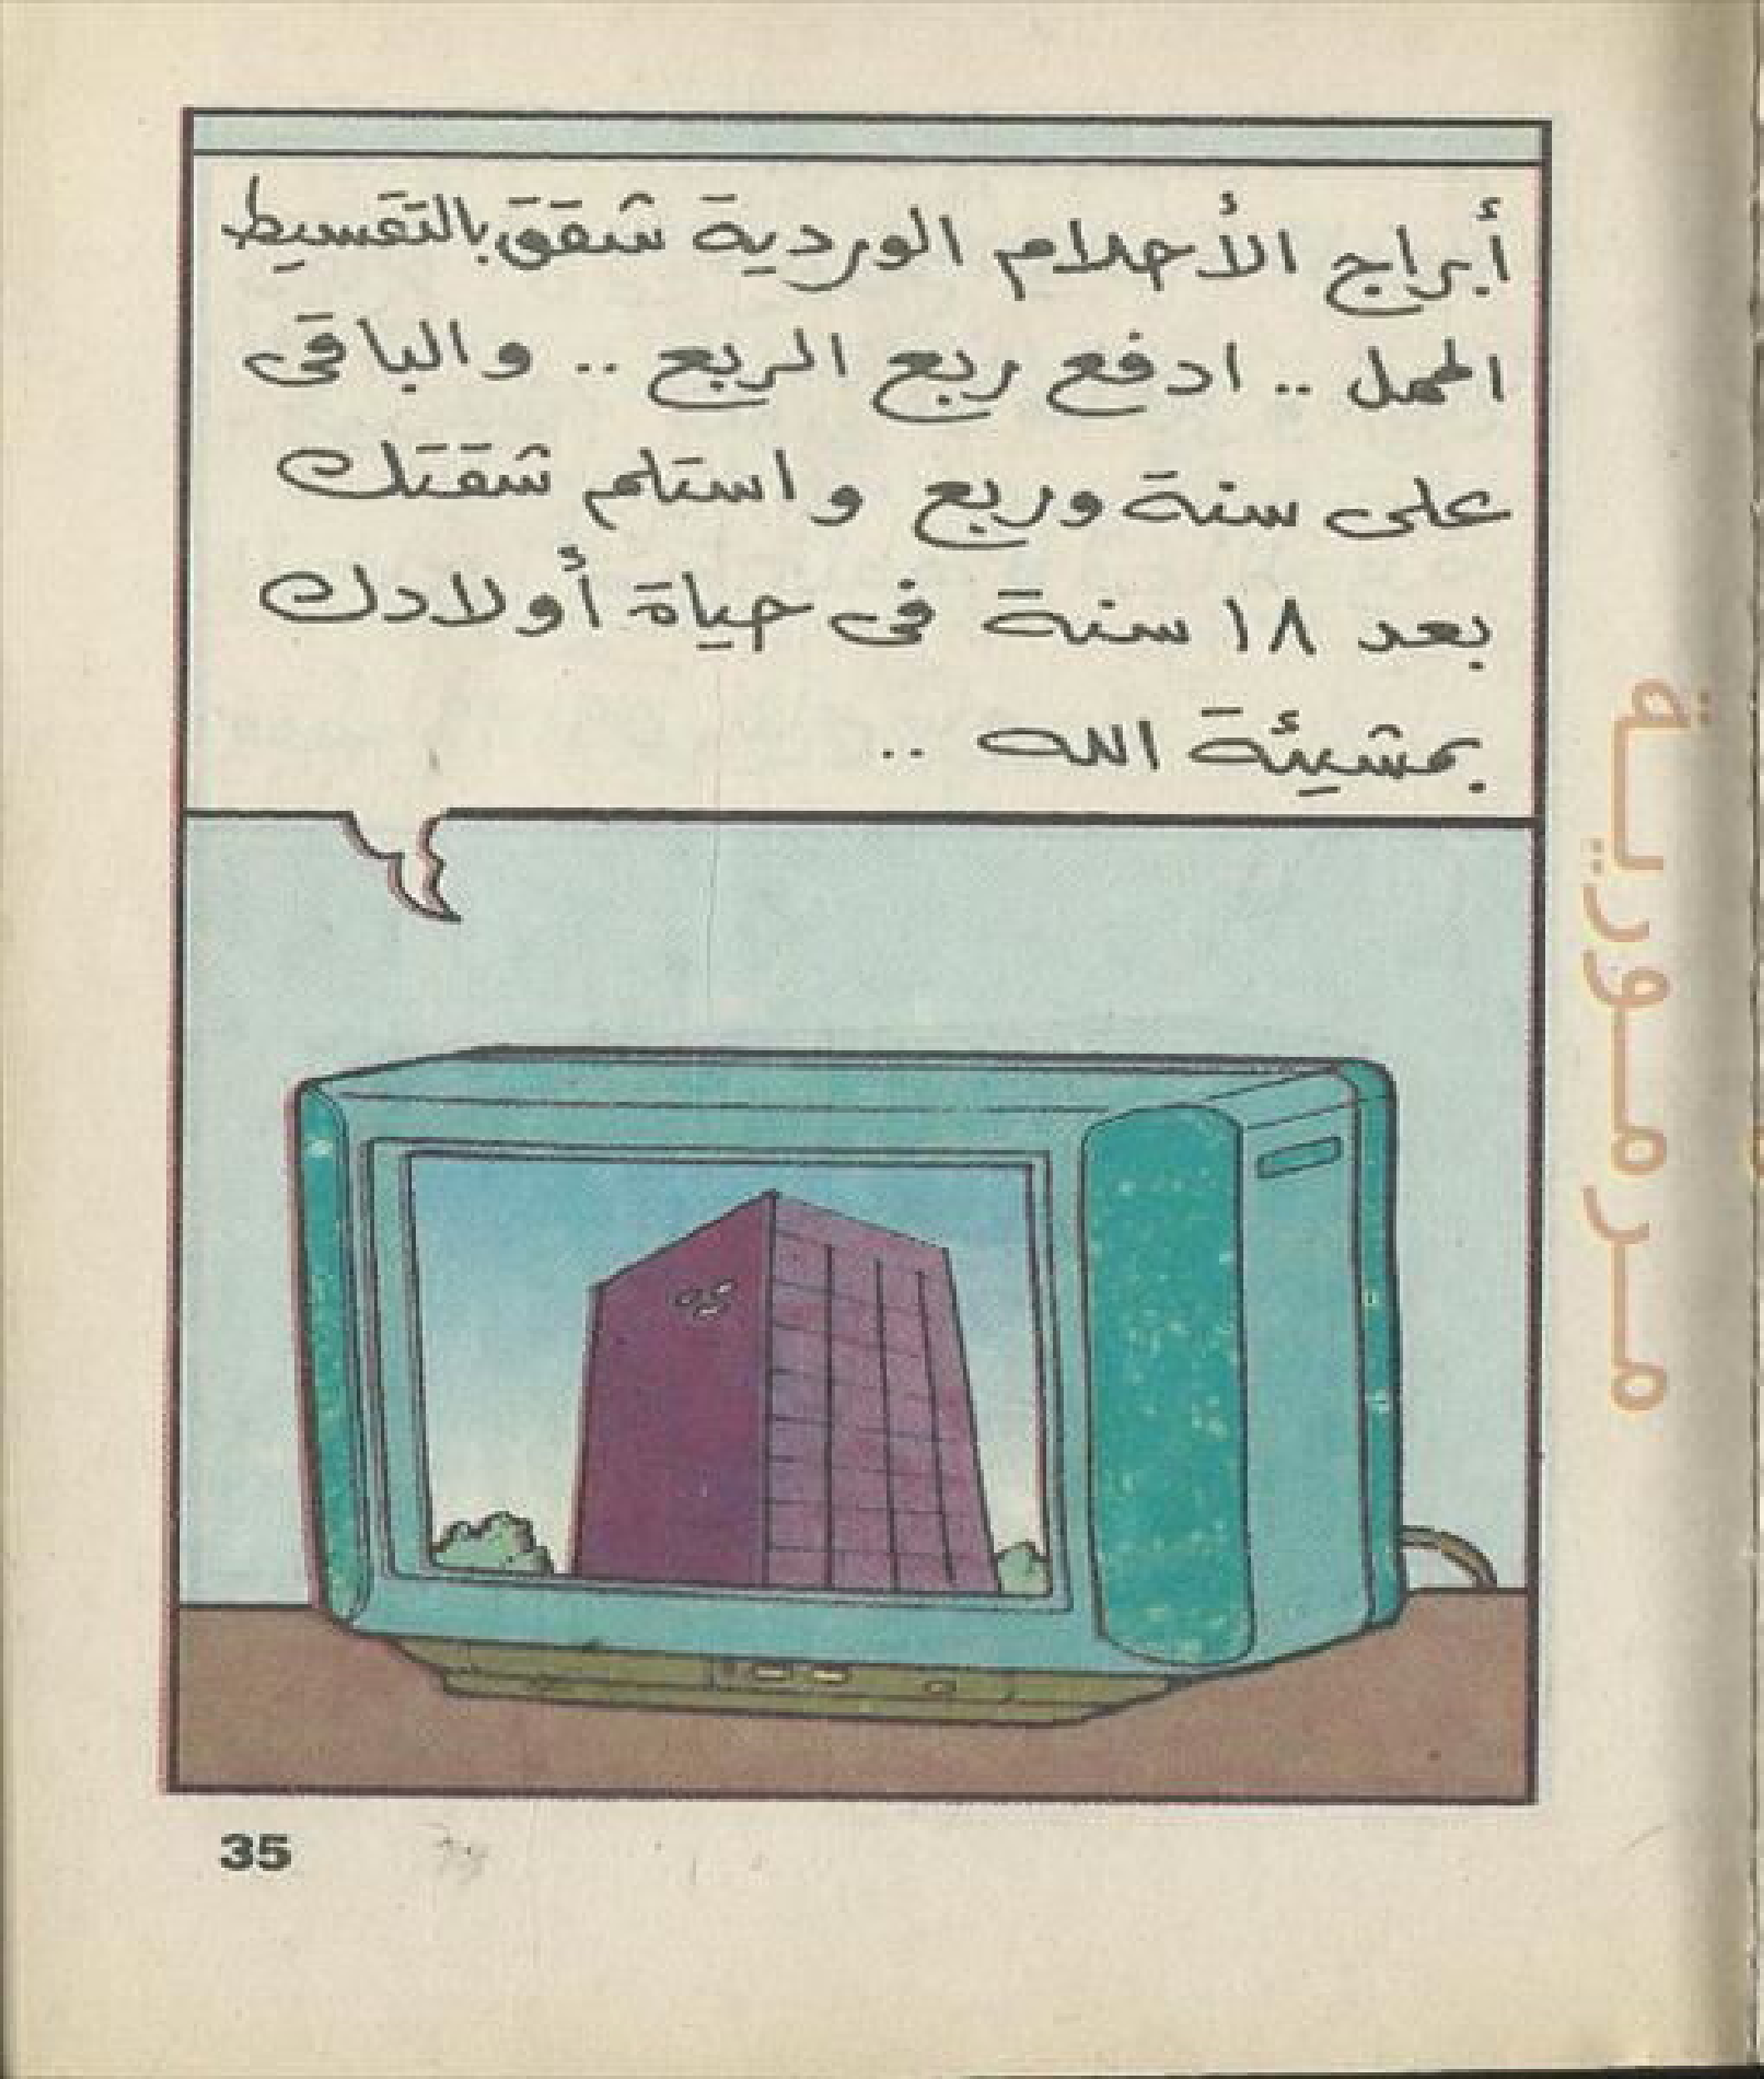 أبراج الأحلام الوردية شقق بالتقسيط
الممل .. ادفع ربع الربع .. والباقى
على سنة وربع واستلم شقتك
بعد ١٨ سنة فى حياة أولادك
بمشيئة الله ..
مرمورية
35